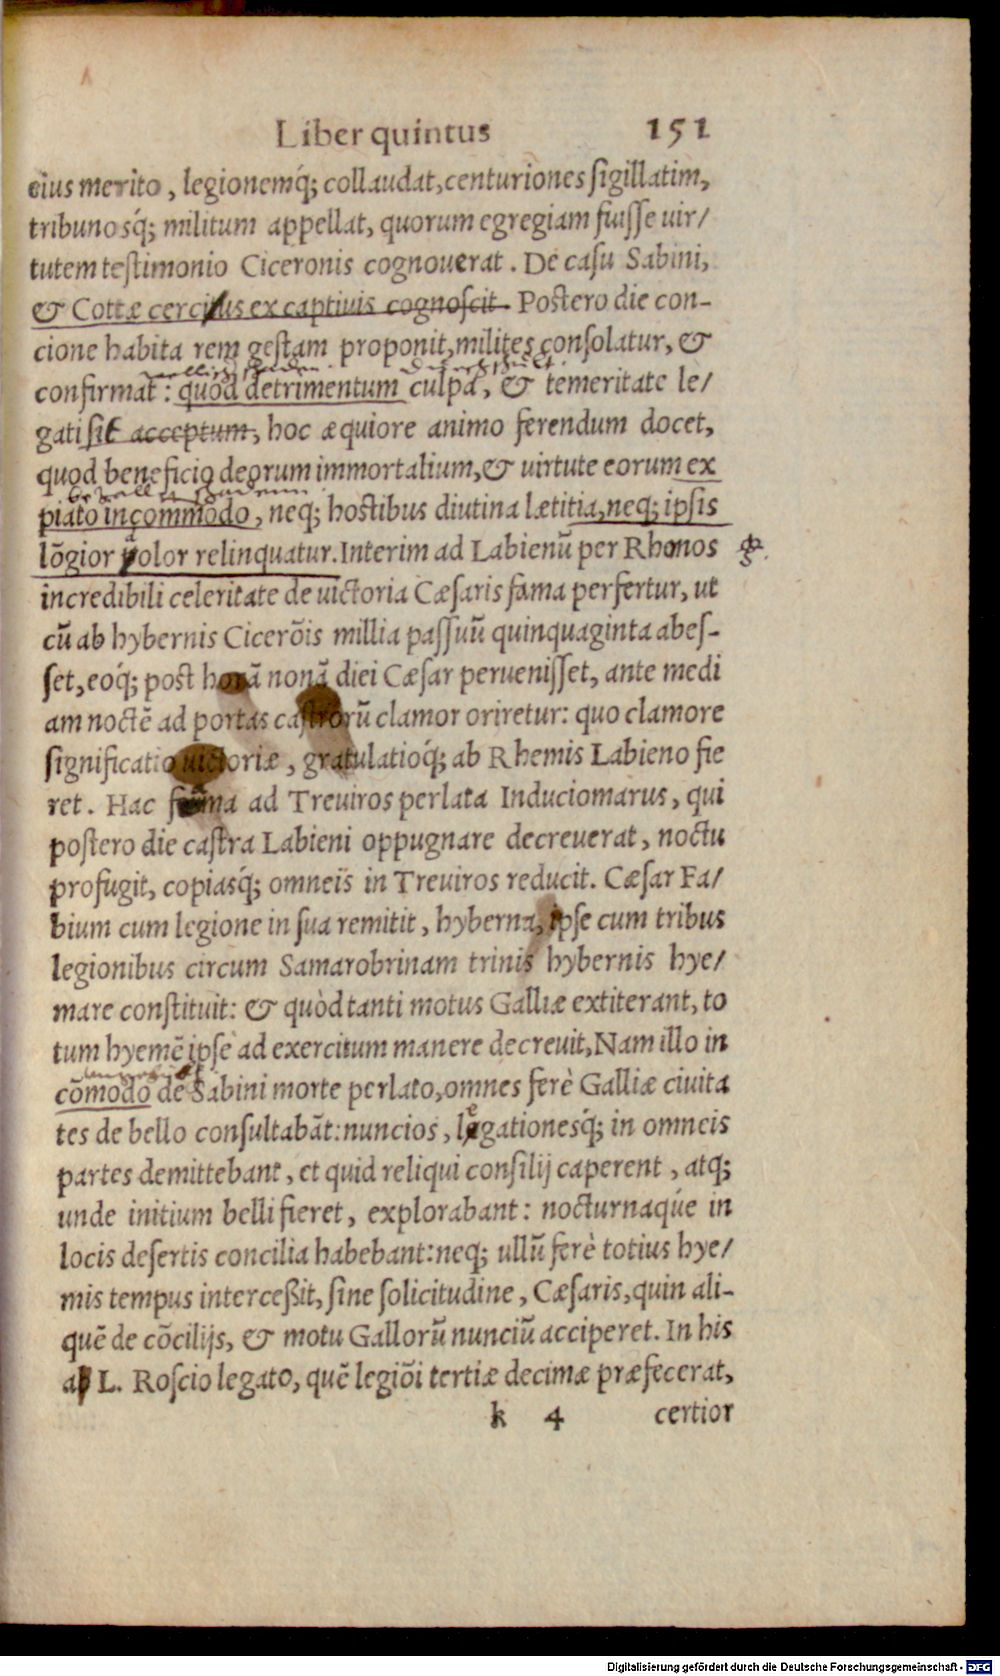 Liber quintus 151
eius merito, legionemq́; collaudat, centuriones sigillatim,
tribunosq́; militum appellat, quorum egregiam fuisse uir/
tutem testimonio Ciceronis cognouerat. De casu Sabini,
& Cottæ certius ex captiuis cognoscit. Postero die con-
cione habita rem gestam proponit, milites consolatur, &
confirmat: quod detrimentum culpa, & temeritate le/
gati sit acceptum, hoc æquiore animo ferendum docet,
quod beneficio deorum immortalium, & virtute eorum ex
piato incommodo, neq; hostibus diutina lætitia, neq; ipsis
lōgior dolor relinquatur. Interim ad Labienū per Rhomos
incredibili celeritate de uictoria Cæsaris fama perfertur, ut
cū ab hybernis Cicerōis millia passuū quinquaginta abes-
set, eoq́; post horā nonā diei Cæsar peruenisset, ante medi
am noctē ad portas castrorū clamor oriretur: quo clamore
significatio uictoriæ, gratulatioq́; ab Rhemis Labieno fie
ret. Hac fama ad Treuiros perlata Induciomarus, qui
postero die castra Labieni oppugnare decreuerat, noctu
profugit, copiasq́; omneis in Treuiros reducit. Cæsar Fa/
bium cum legione in sua remitit, hyberna, ipse cum tribus
legionibus circum Samarobrinam trinis hybernis hye/
mare constituit: & quòd tanti motus Galliæ extiterant, to
tum hyemē ipse ad exercitum manere decreuit, Nam illo in
cōmodo de Sabini morte perlato, omnes ferè Galliæ ciuita
tes de bello consultabāt: nuncios, legationesq́; in omneis
partes demittebant, et quid reliqui consilij caperent, atq;
unde initium belli fieret, explorabant: nocturnaqúe in
locis desertis concilia habebant: neq; ullū ferè totius hye/
mis tempus interceßit, sine solicitudine, Cæsaris, quin ali-
quē de cōcilijs, & motu Gallorū nunciū acciperet. In his
ab L. Roscio legato, quē legiōi tertiæ decimæ præfecerat,
k 4 certior
Digitalisierung gefördert durch die Deutsche Forschungsgemeinschaft - DFG